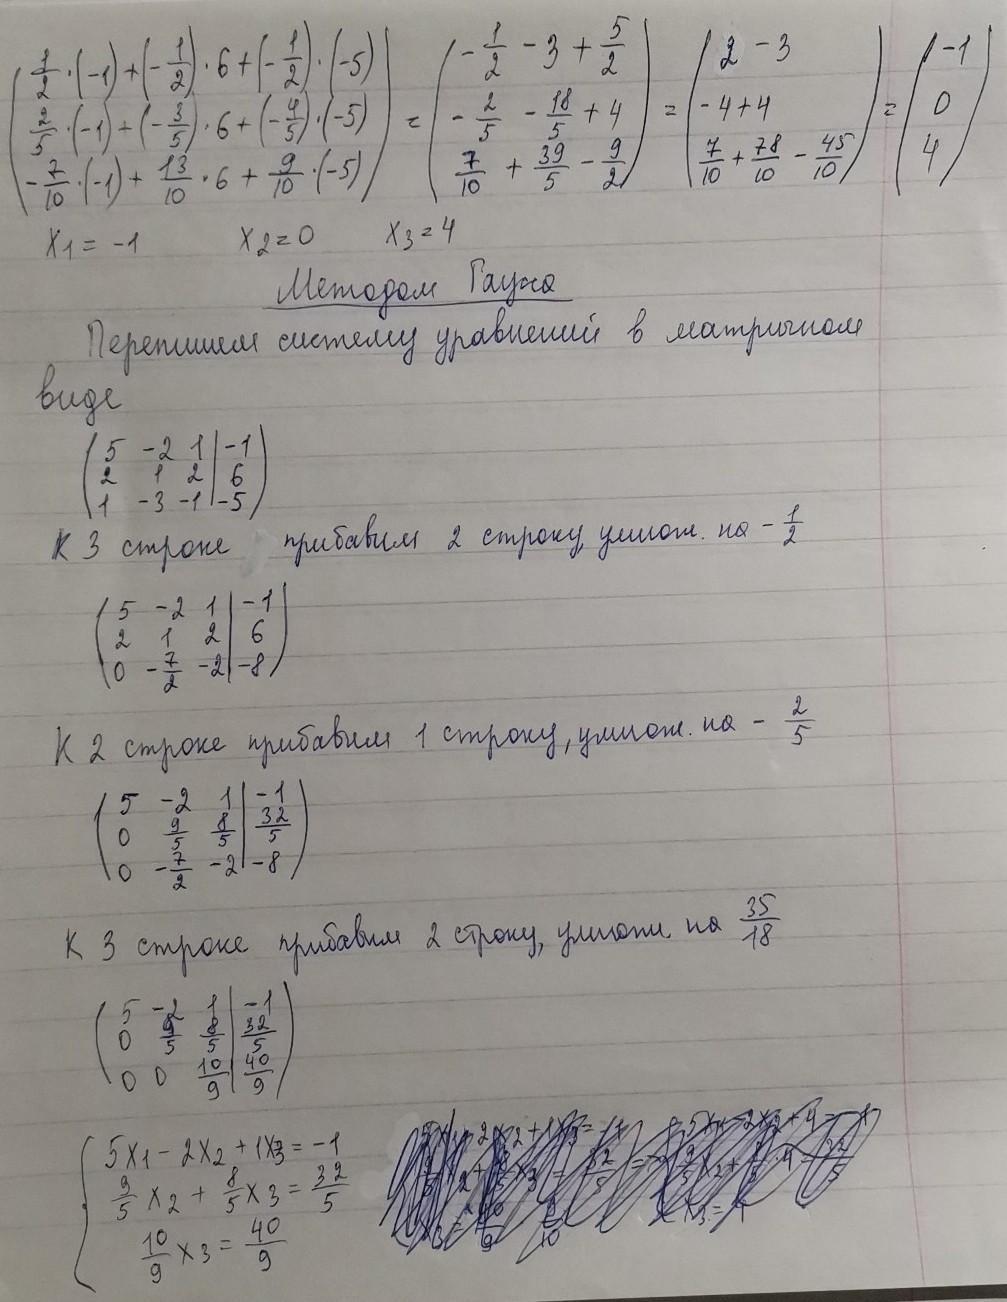 (1/2·(-1)+(-1/2)·6+(-1/2)·(-5)) (-1/2 - 3 + 5/2) (2 - 3) (-1)
(2/5·(-1)+(-3/5)·6+(-4/5)·(-5)) = (-2/5 - 18/5 + 4) = (-4+4) = (0)
(-7/10·(-1)+13/10·6+9/10·(-5)) (7/10 + 39/5 - 9/2) (7/10 + 78/10 - 45/10) (4)
x1 = -1 x2 = 0 x3 = 4
Методом Гаусса
Перепишем систему уравнений в матричном
виде
(5 -2 1 | -1)
(2 1 2 | 6)
(1 -3 -1 | -5)
К 3 строке прибавим 2 строку, умнож. на -1/2
(5 -2 1 | -1)
(2 1 2 | 6)
(0 -7/2 -2 | -8)
К 2 строке прибавим 1 строку, умнож. на -2/5
(5 -2 1 | -1)
(0 9/5 8/5 | 32/5)
(0 -7/2 -2 | -8)
К 3 строке прибавим 2 строку, умнож. на 35/18
(5 -2 1 | -1)
(0 9/5 8/5 | 32/5)
(0 0 10/9 | 40/9)
{ 5x1 - 2x2 + 1x3 = -1
9/5 x2 + 8/5 x3 = 32/5
10/9 x3 = 40/9